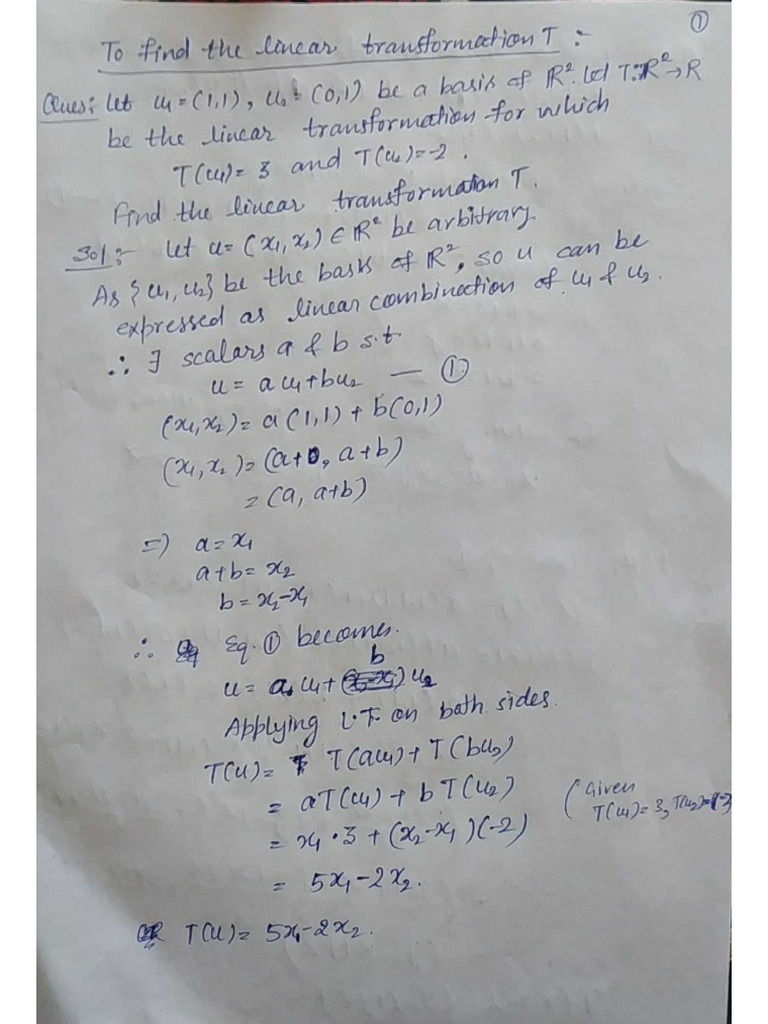 ①
To find the linear transformation T :-
Ques: Let u₁ = (1,1), u₂ = (0,1) be a basis of R². Let T: R² → R
be the linear transformation for which
T(u₁) = 3 and T(u₂) = -2.
Find the linear transformation T.
Sol :- Let u = (x₁, x₂) ∈ R² be arbitrary.
As {u₁, u₂} be the basis of R², so u can be
expressed as linear combination of u₁ & u₂.
∴ ∃ scalars a & b s.t.
u = a u₁ + b u₂ — ①
(x₁, x₂) = a(1,1) + b(0,1)
(x₁, x₂) = (a+0, a+b)
= (a, a+b)
⇒ a = x₁
a+b = x₂
b = x₂ - x₁
∴ Eq. ① becomes.
u = a u₁ + b u₂
Applying L.T. on both sides.
T(u) = T(au₁) + T(bu₂)
= aT(u₁) + bT(u₂) (Given
= x₁ · 3 + (x₂ - x₁)(-2) T(u₁) = 3, T(u₂) = -2
= 5x₁ - 2x₂.
T(u) = 5x₁ - 2x₂.